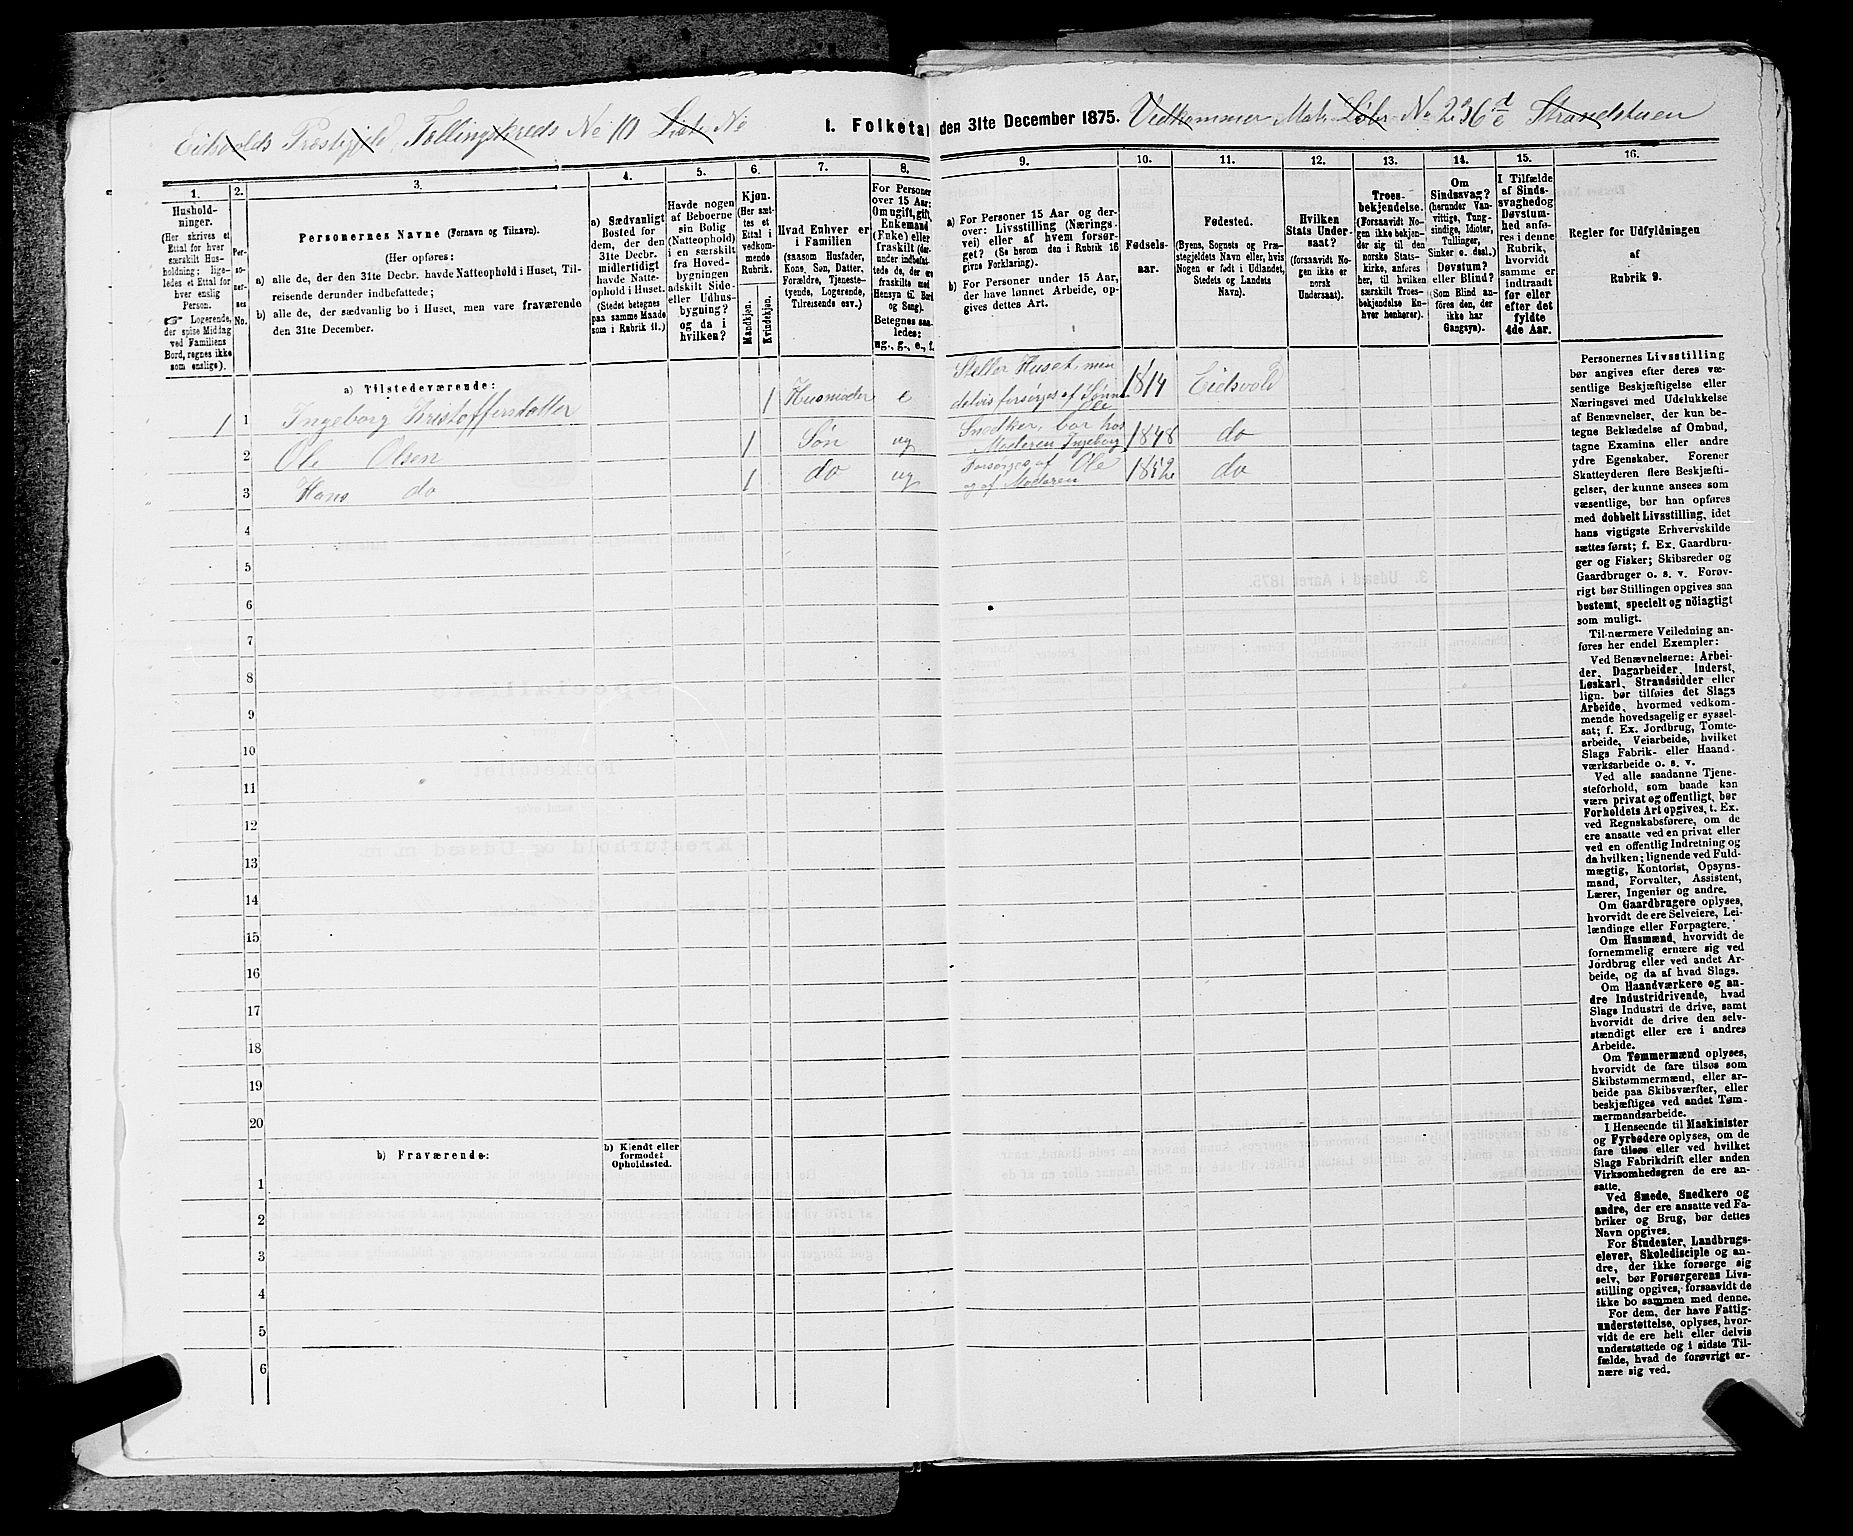 Eidsvolds Præstegjeld, Tællingskreds No 10 Liste No
I. Folketa den 31te December 1875. Vedkommer Mat. Løbe No 236 d e Strandstuen
1.
Hushold-
ninger.
(Her skrives et
Ettal for hver
særskilt Hus-
holdning; lige-
ledes et Ettal for
hver enslig
Person.
Logerende,
der spise Middag
ved Familiens
Bord, regnes ikke
som enslige).
2.
Per-
so-
ner-
nes
No.
3.
Personernes Navne (Fornavn og Tilnavn).
(Her opføres:
a) alle de, der den 31te Decbr. havde Natteophold i Huset, Til-
reisende derunder indbefattede;
b) alle de, der sædvanlig bo i Huset, men vare fraværende
den 31te December.
4.
a) Sædvanligt
Bosted for
dem, der den
31te Decbr.
midlertidigt
havde Natte-
ophold i Huset.
(Stedet betegnes
paa samme Maade
som i Rubrik 11.)
5.
Havde nogen
af Beboerne
sin Bolig
(Natteophold)
i en særskilt
fra Hoved-
bygningen
adskilt Side-
eller Udhus-
bygning?
og da i
hvilken?
6.
Kjøn.
(Her sæt-
tes et
Ettal i
vedkom-
mende
Rubrik.
Mandkjøn.
Kvindekjøn.
7.
Hvad Enhver er
i Familien
(saasom Husfader,
Kone, Søn, Datter,
Forældre, Tjeneste-
tyende, Logerende,
Tilreisende osv.)
8.
For Personer
over 15 Aar:
Om ugift, gift,
Enkemand
(Enke) eller
fraskilt (der-
under indbefat-
tede de, der ere
fraskilte med
Hensyn til Bord
og Seng).
Betegnes saa-
ledes:
ug., g., e., f.
9.
a) For Personer 15 Aar og der-
over: Livsstilling (Nærings-
vei) eller af hvem forsør-
get? (Se herom den i Rubrik 16
givne Forklaring).
b) For Personer under 15 Aar,
der have lønnet Arbeide, op-
gives dettes Art.
10.
Fødsels-
aar.
11.
Fødested.
(Byens, Sognets og Præ-
stegjeldets Navn eller, hvis
Nogen er født i Udlandet,
Stedets og Landets
Navn).
12.
Hvilken
Stats Under-
saat?
(forsaavidt No-
gen ikke er
norsk
Undersaat).
13.
Troes-
bekjendelse.
(Forsaavidt No-
gen ikke bekjen-
der sig til den
norske Stats-
kirke, anføres
her, til hvilken
særskilt Troes-
bekjendelse En-
hver henhører).
14.
Om
Sindssvag?
(herunder Van-
vittige, Tung-
sindige, Idioter,
Tullinger,
Sinker o. desl.)
Døvstum?
eller Blind?
(Som Blind an-
føres den, der
ikke har
Gangsyn).
15.
I Tilfælde
af Sinds-
svaghed og
Døvstum-
hed anfø-
res i denne
Rubrik,
hvorvidt
samme er
indtraadt
før eller
efter det
fyldte
4de Aar.
16.
Regler for Udfyldningen
af
Rubrik 9.
a) Tilstedeværende:
1 1 Ingeborg Kristoffersdatter 1 Husmoder e Steller Huset, men delvis forsørges af Sønnen Ole 1814 Eidsvold
2 Ole Olsen 1 Søn ug Snedker, bor hos Moderen Ingeborg 1848 do
3 Hans do 1 do ug Forsørges af Ole og af Moderen 1852 do
4
5
6
7
8
9
10
11
12
13
14
15
16
17
18
19
20
b) Fraværende:
b) Kjendt eller
formodet
Opholdssted.
1
2
3
4
5
6
Personernes Livsstilling
bør angives efter deres væ-
sentlige Beskjæftigelse eller
Næringsvei med Udelukkelse
af Benævnelser, der kun be-
tegne Beklædelse af Ombud,
tagne Examina eller andre
ydre Egenskaber. Forener
Skatteyderen flere Beskjæfti-
gelser, der kunne ansees som
væsentlige, bør han opføres
med dobbelt Livsstilling, idet
hans vigtigste Erhvervskilde
sættes først; f. Ex. Gaardbru-
ger og Fisker; Skibsreder og
Gaardbruger o. s. v. Forøv-
rigt bør Stillingen opgives saa
bestemt, specielt og nöiagtigt
som muligt.
Til nærmere Veiledning an-
føres her endel Exempler:
Ved Benævnelserne: Arbei-
der, Dagarbeider, Inderst,
Løskarl, Strandsidder eller
lign. bør tilføies det Slags
Arbeide, hvormed vedkom-
mende hovedsagelig er syssel-
sat; f. Ex. Jordbrug, Tomte-
arbeide, Veiarbeide, hvilket
Slags Fabrik- eller Haand-
værksarbeide o. s. v.
Ved alle saadanne Tjene-
steforhold, som baade kan
være privat og offentligt, bør
Forholdets Art opgives, t. Ex.
ved Regnskabsførere, om de
ere ansatte ved en privat eller
ved en offentlig Indretning og
da hvilken; lignende ved Fuld-
mægtig, Kontorist, Opsyns-
mand, Forvalter, Assistent,
Lærer, Ingeniør og andre.
Om Gaardbrugere oplyses,
hvorvidt de ere Selveiere, Lei-
lændinge eller Forpagtere.
Om Husmænd, hvorvidt de
fornemmelig ernære sig ved
Jordbrug eller ved andet Ar-
beide, og da af hvad Slags.
Om Haandværkere og an-
dre Industridrivende, hvad
Slags Industri de drive, samt
hvorvidt de drive den selv-
stændigt eller ere i andres
Arbeide.
Om Tømmermænd oplyses,
hvorvidt de fare tilsøs som
Skibstømmermænd, eller ar-
beide paa Skibsværfter, eller
beskjæftiges ved andet Tøm-
mermandsarbeide.
I Henseende til Maskinister
og Fyrbødere oplyses, om de
fare tilsøs eller ved hvilket
Slags Fabrikdrift eller anden
Virksomhedsgren de ere an-
satte.
Ved Smede, Snedkere og
andre, der ere ansatte ved Fa-
briker og Brug, bør dettes
Navn opgives.
For Studenter, Landbrugs-
elever, Skoledisciple og an-
dre, der ikke forsørge sig
selv, bør Forsørgerens Livs-
stilling opgives, forsaavidt de
ikke bo sammen med denne.
For dem, der have Fattig-
understøttelse, oplyses, hvor-
vidt de ere helt eller delvis
understøttede og i sidste Til-
fælde, hvad de forøvrigt er-
nære sig ved.